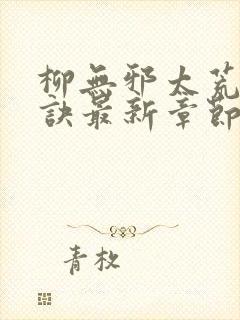 柳無邪太荒
訣最新章節
青枚